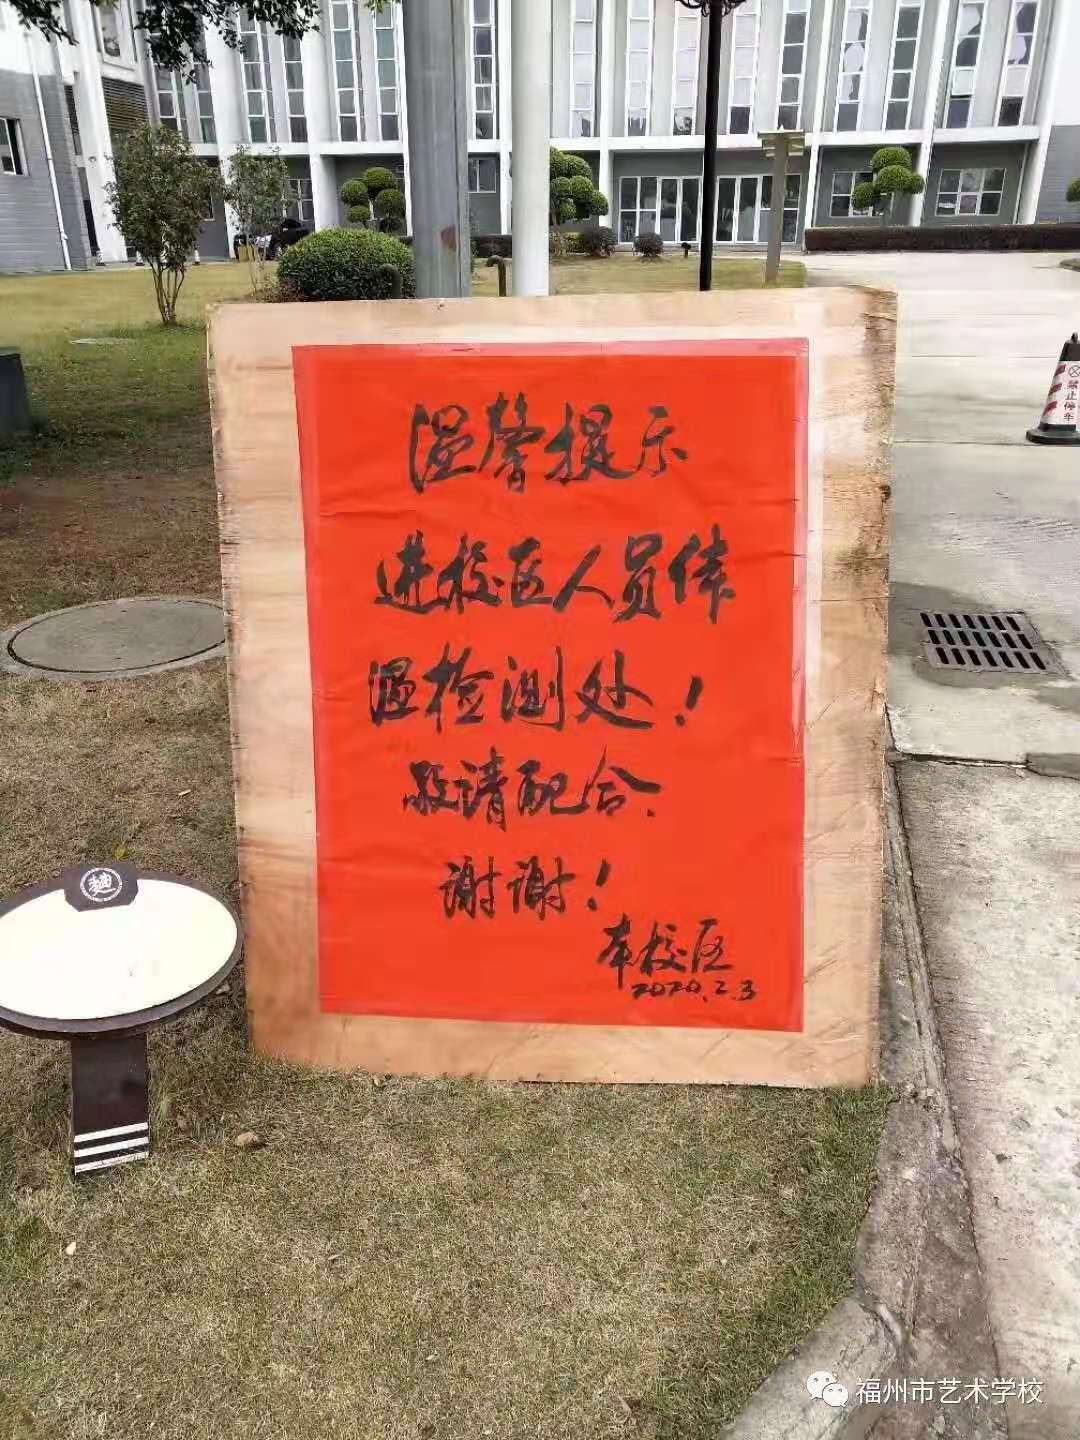 温馨提示
进校区人员体
温检测处！
敬请配合.
谢谢！
本校区
2020.2.3
禁止停车
福州市艺术学校